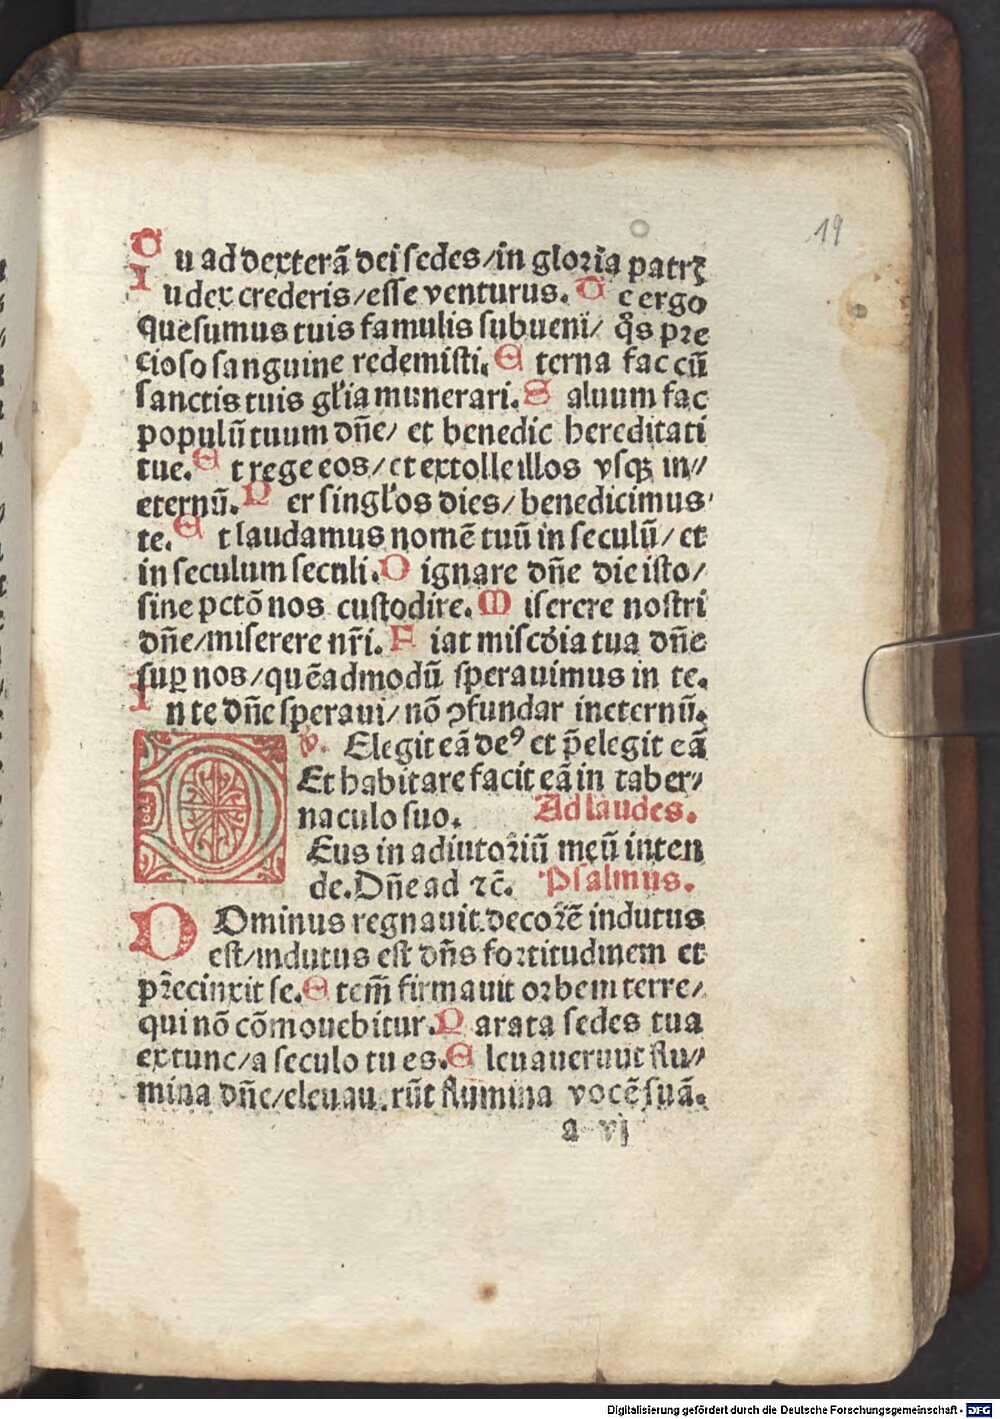 19
Tu ad dexterã dei sedes/in gloria patrꝫ
Iudex crederis/esse venturus. Te ergo
quesumus tuis famulis subueni/ q̃s pre
cioso sanguine redemisti. Eterna fac cũ
sanctis tuis gl'ia munerari. Saluum fac
populũ tuum dñe/ et benedic hereditati
tue. Et rege eos/et extolle illos vsqꝫ in//
eternũ. Per singl'os dies/benedicimus
te. Et laudamus nomẽ tuũ in seculũ/et
in seculum seculi. Dignare dñe die isto/
sine pctõ nos custodire. Miserere nostri
dñe/miserere nr̃i. Fiat misc'dia tua dñe
suꝑ nos/quẽadmodũ sperauimus in te.
In te dñe speraui/nõ ꝯfundar ineternũ.
v. Elegit eã deꝰ et p̃elegit eã
Et habitare facit eã in taber//
naculo suo. Ad laudes.
DEus in adiutoriũ meũ inten
de. Dñe ad ⁊c̃. Psalmus.
DOminus regnauit.decorẽ indutus
est/indutus est dñs fortitudinem et
p̃recinxit se. Etem̃ firmauit orbem terre/
qui nõ cõmouebitur. Parata sedes tua
ex tunc/a seculo tu es. Eleuauerunt flu//
mina dñe/eleuau.rũt flumina vocẽ suã.
a vj
Digitalisierung gefördert durch die Deutsche Forschungsgemeinschaft - DFG